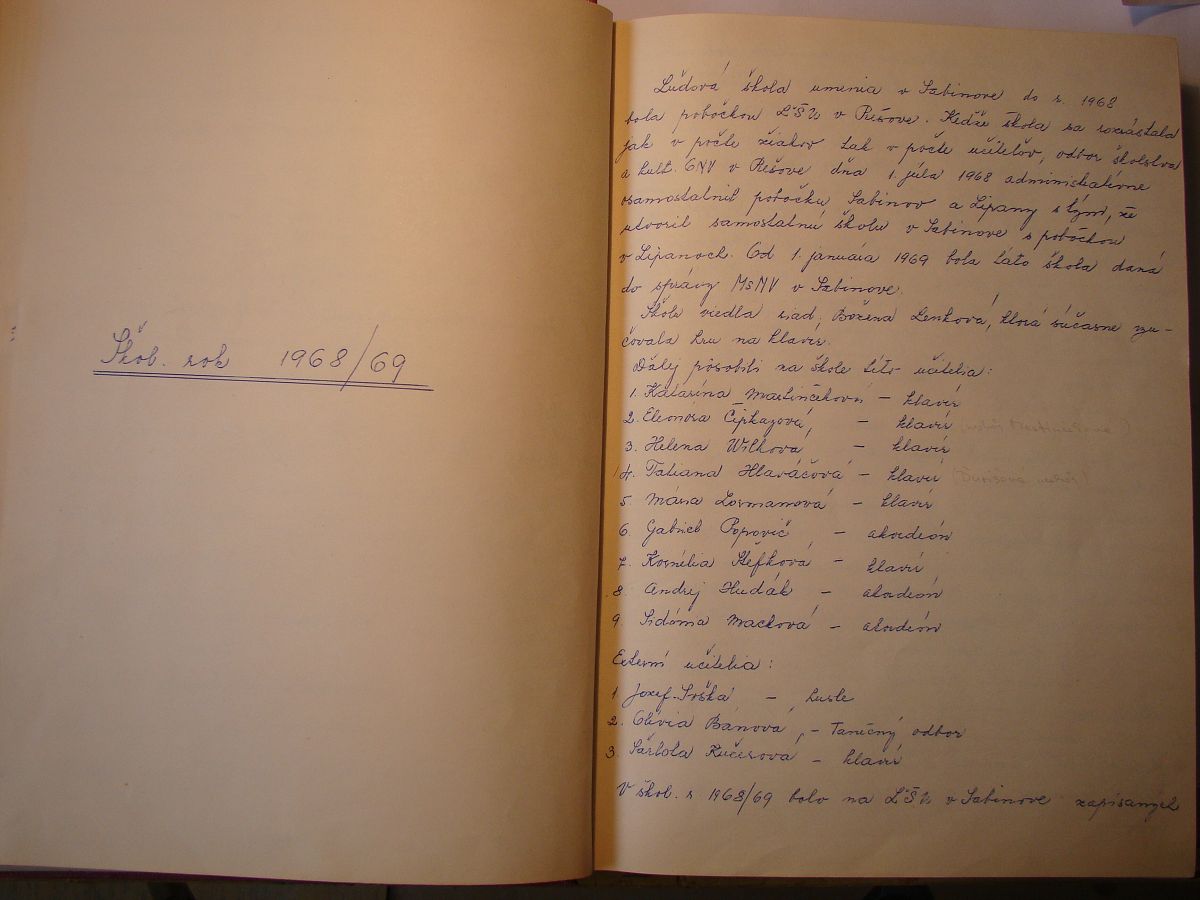 Škol. rok 1968/69
Ľudová škola umenia v Sabinove do r. 1968
bola pobočkou ĽŠU v Prešove. Kedže škola sa rozrástala
jak v počte žiakov tak v počte učiteľov, odbor školstva
a kult. ONV v Prešove dňa 1. júla 1968 administratívne
osamostatnil pobočku Sabinov a Lipany s tým, že
utvoril samostatnú školu v Sabinove s pobočkou
v Lipanoch. Od 1. januára 1969 bola táto škola daná
do správy MsNV v Sabinove.
Školu viedla riad. Božena Lenková, ktorá súčasne vyu-
čovala hru na klavír.
Ďalej pôsobili na škole títo učitelia:
1. Katarína Martinčeková – klavír
2. Eleonóra Čipkayová, – klavír
3. Helena Wilková – klavír
4. Tatiana Hlaváčová – klavír
5. Mária Lormanová – klavír
6. Gabriel Popovič – akordeón
7. Kornélia Štefková – klavír
8. Andrej Hudák – akordeón
9. Sidónia Macková – akordeón
Externí učitelia:
1 Jozef – husle
2. Olívia Bánová, – Tanečný odbor
3. Šarlota Kučerová – klavír
V škol. r. 1968/69 bolo na ĽŠU v Sabinove zapísaných